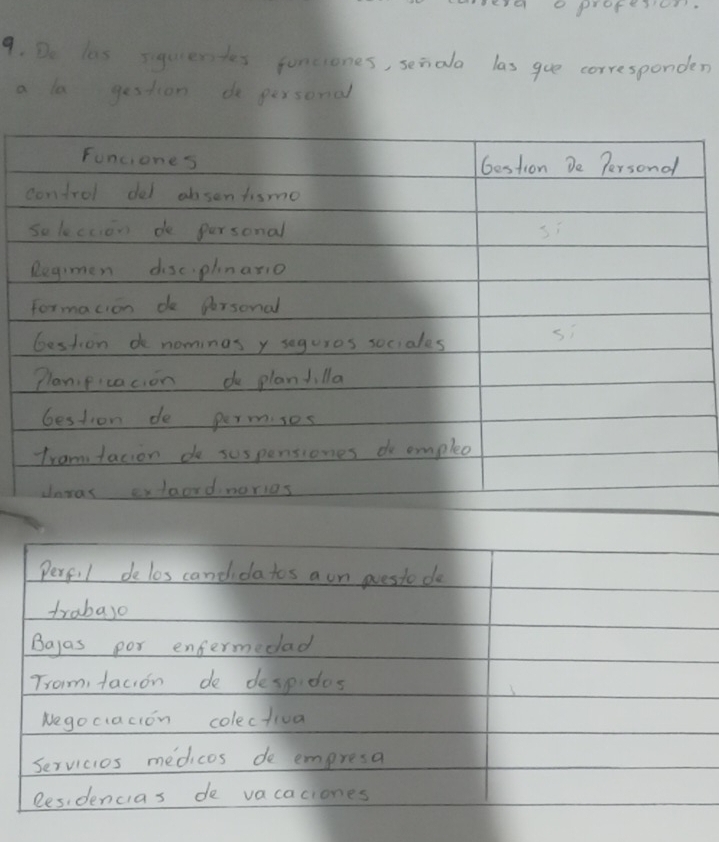 carrera o profesión.
9. De las siguientes funciones, señala las que corresponden
a la gestion de personal
Funciones Gestion De Personal
control del absentismo
selección de personal si
Regimen disciplinario
formación de personal
Gestion de nominas y seguros sociales si
Planificación de plantilla
Gestion de permisos
tramitación de suspensiones de empleo
Horas extaordinarios
Perfil de los candidatos a un puesto de
trabajo
Bajas por enfermedad
Tramitación de despidos
Negociación colectiva
Servicios médicos de empresa
Residencias de vacaciones